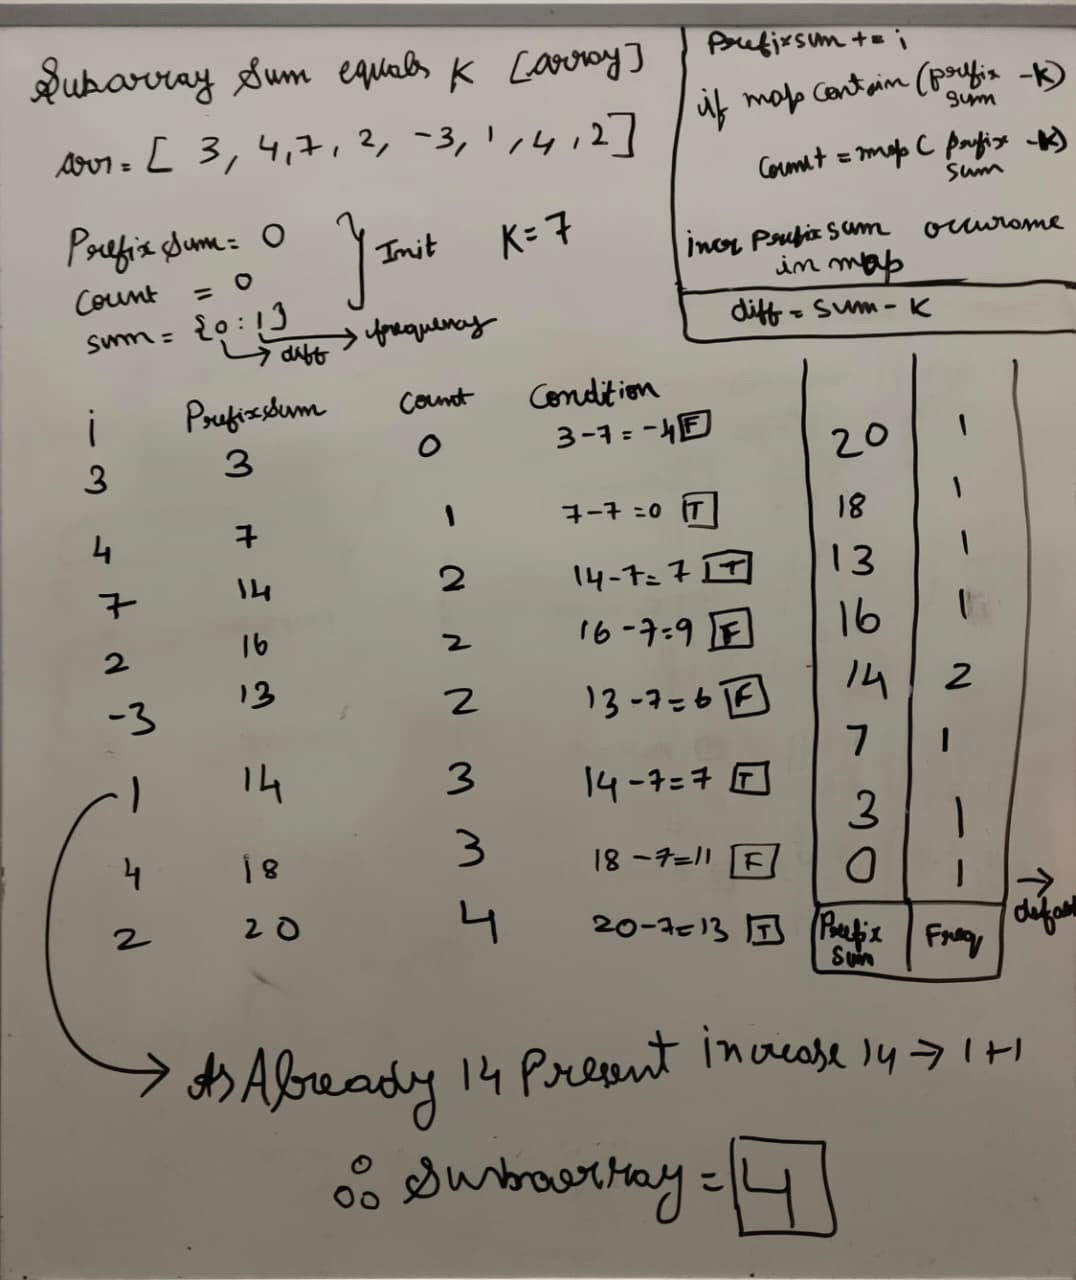 Subarray Sum equals K [array]
arr = [ 3, 4, 7, 2, -3, 1, 4, 2]
Prefix Sum = 0
Count = 0
sum = {0:1}
} Init
K = 7
diff
frequency
Prefixsum += i
if map contain (prefix sum - K)
Count + = map ( prefix sum - K)
incr Prefix sum occurence
in map
diff = sum - K
i PrefixSum Count Condition
3 3 0 3-7 = -4 F
4 7 1 7-7 = 0 T
7 14 2 14-7 = 7 T
2 16 2 16-7 = 9 F
-3 13 2 13-7 = 6 F
1 14 3 14-7 = 7 T
4 18 3 18-7 = 11 F
2 20 4 20-7 = 13 T
20 1
18 1
13 1
16 1
14 2
7 1
3 1
0 1 →
Prefix Sum Freq
→ As Already 14 Present increase 14 → 1+1
∴ Subarray = 4